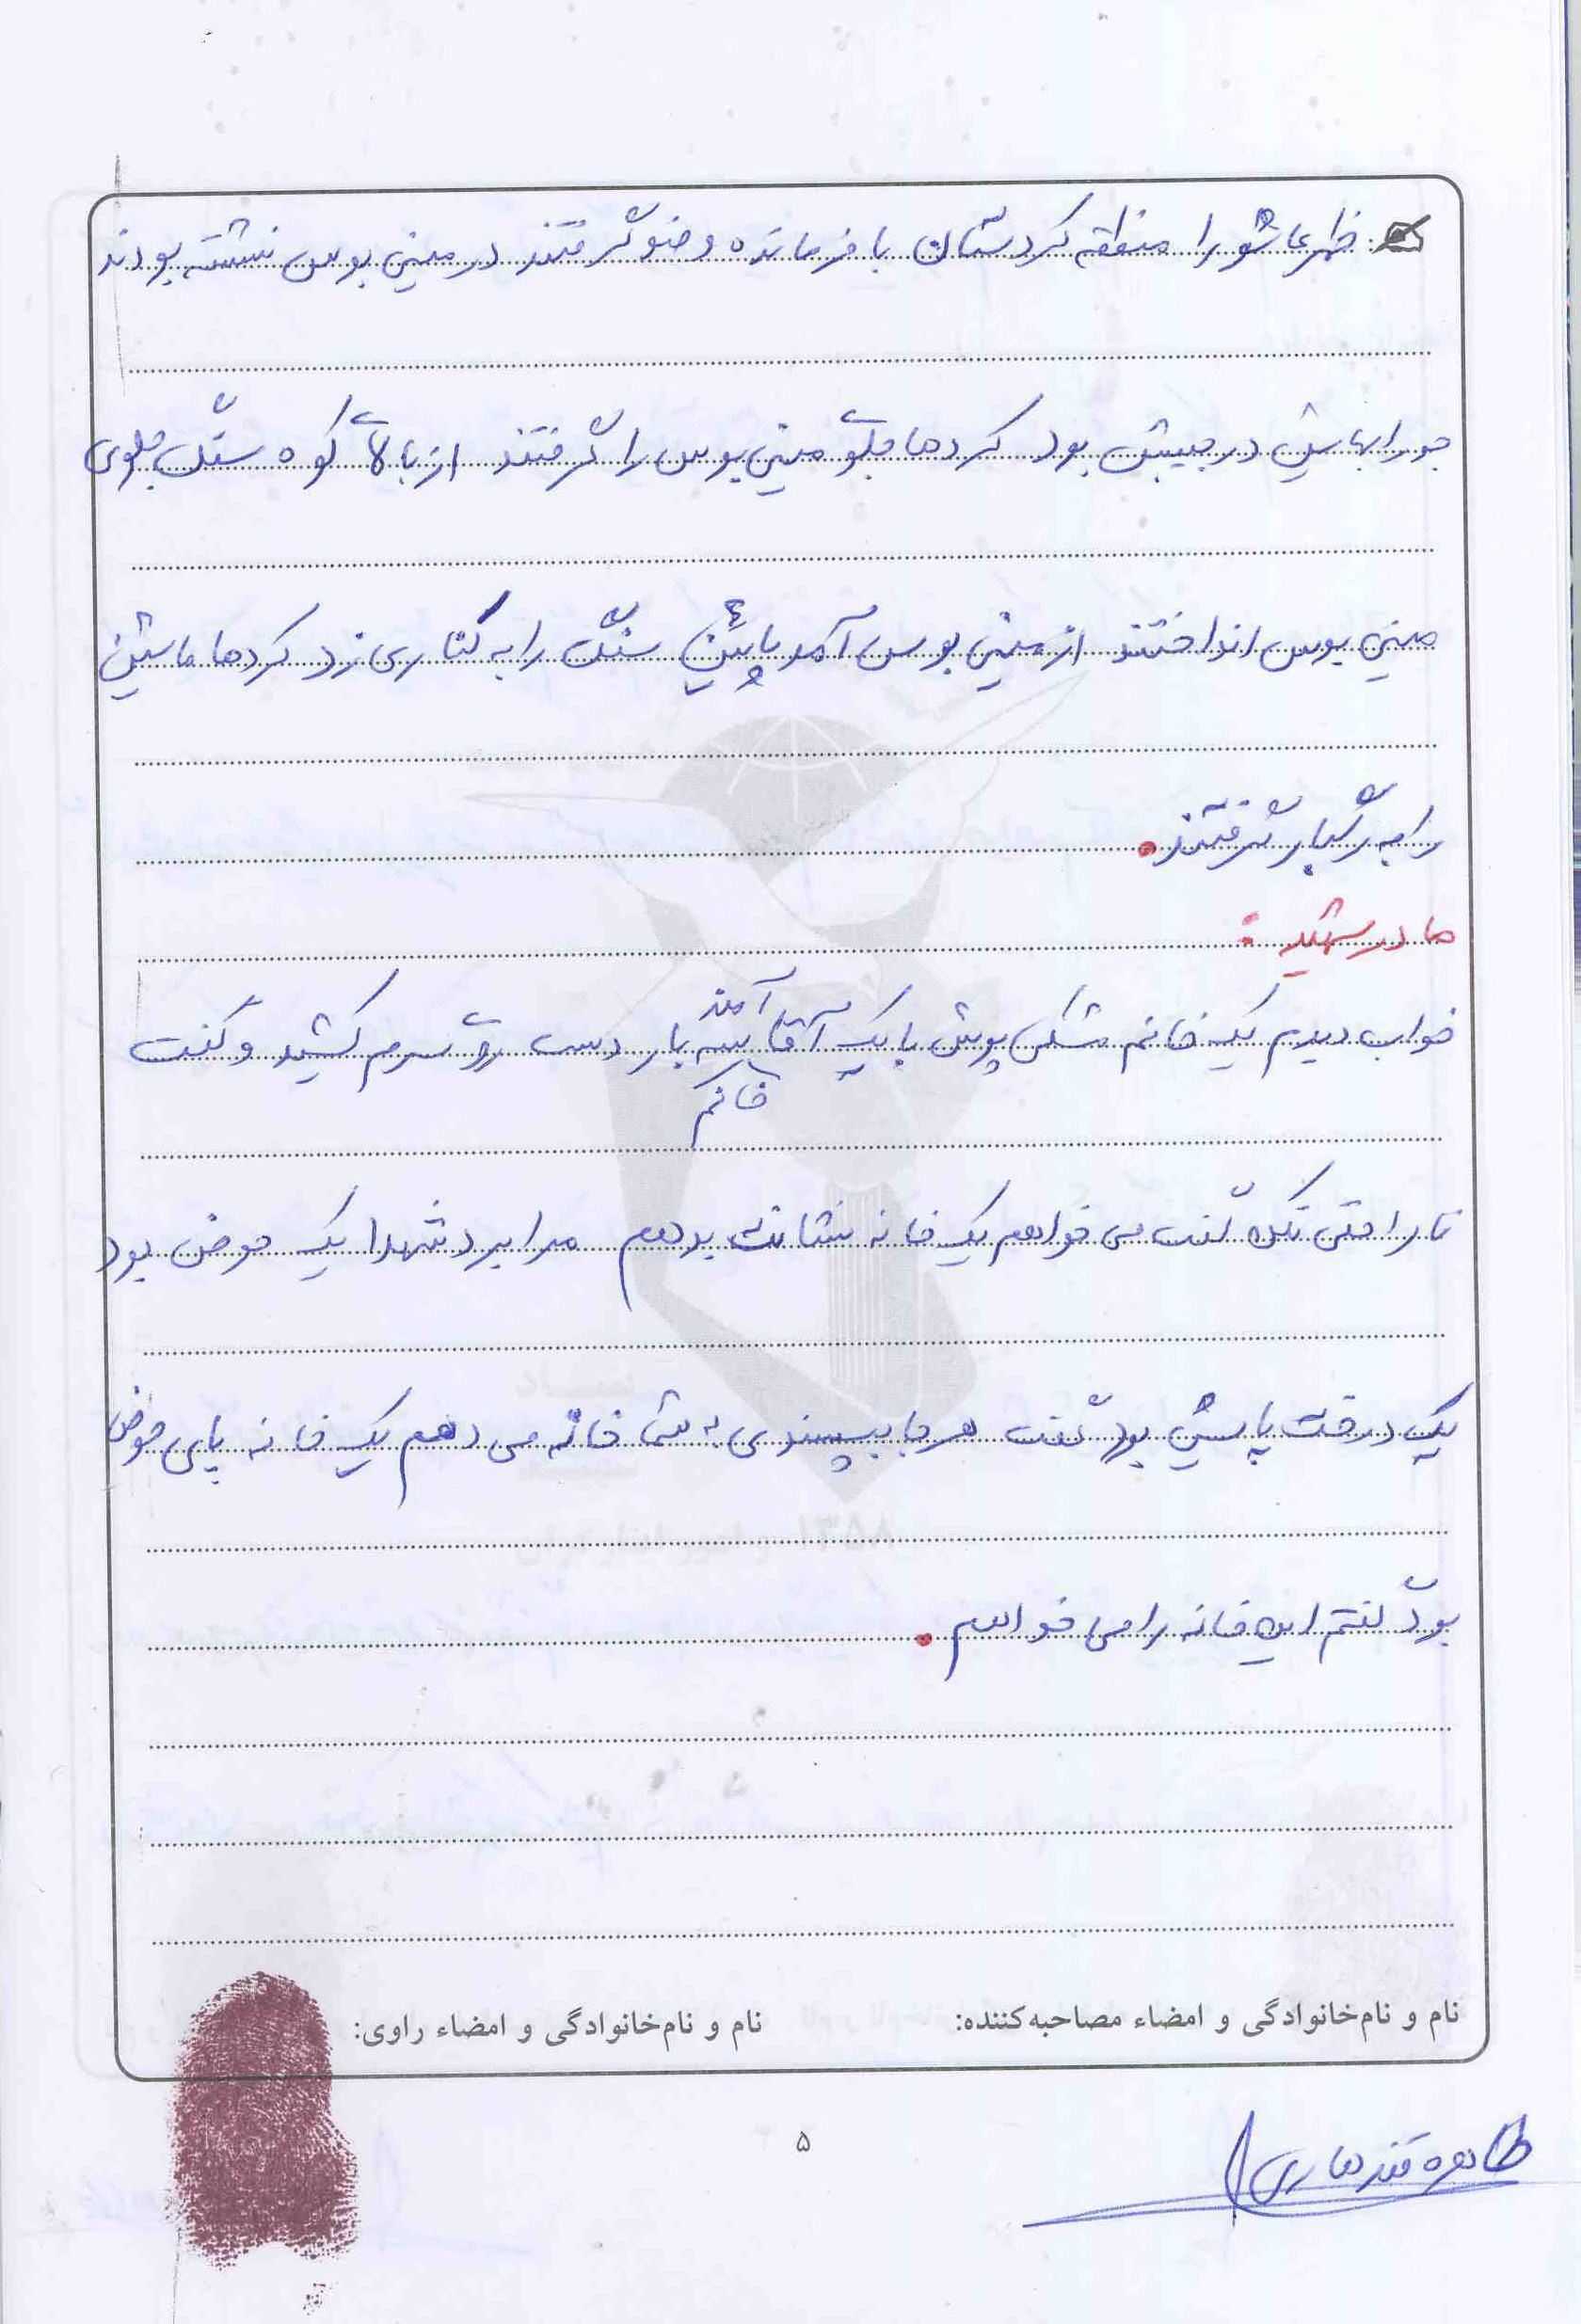 ظهر عاشورا منطقه کردستان با فرمانده وضو گرفتند در مینی بوس نشسته بودند
جورابهایش در جیبش بود کردها جلوی مینی بوس را گرفتند از بالای کوه سنگ جلوی
مینی بوس انداختند از مینی بوس آمد پائین سنگ را به کناری زد کردها ماشین
را به رگبار گرفتند.
مادر شهید :
خواب دیدم یک خانم مشکی پوش با یک آقا آمدند سه بار دست روی سرم کشید و گفت
خانم
ناراحتی نکن گفت می خواهم یک خانه نشانت بدهم مرا برد شهدا یک حوض بود
یک درخت پایش بود گفت هر جا بپسندی به شما خانه می دهم یک خانه پای حوض
بود گفتم این خانه را می خواهم.
نام و نام‌خانوادگی و امضاء مصاحبه‌کننده:
نام و نام‌خانوادگی و امضاء راوی:
۵
طاهره قندهاری